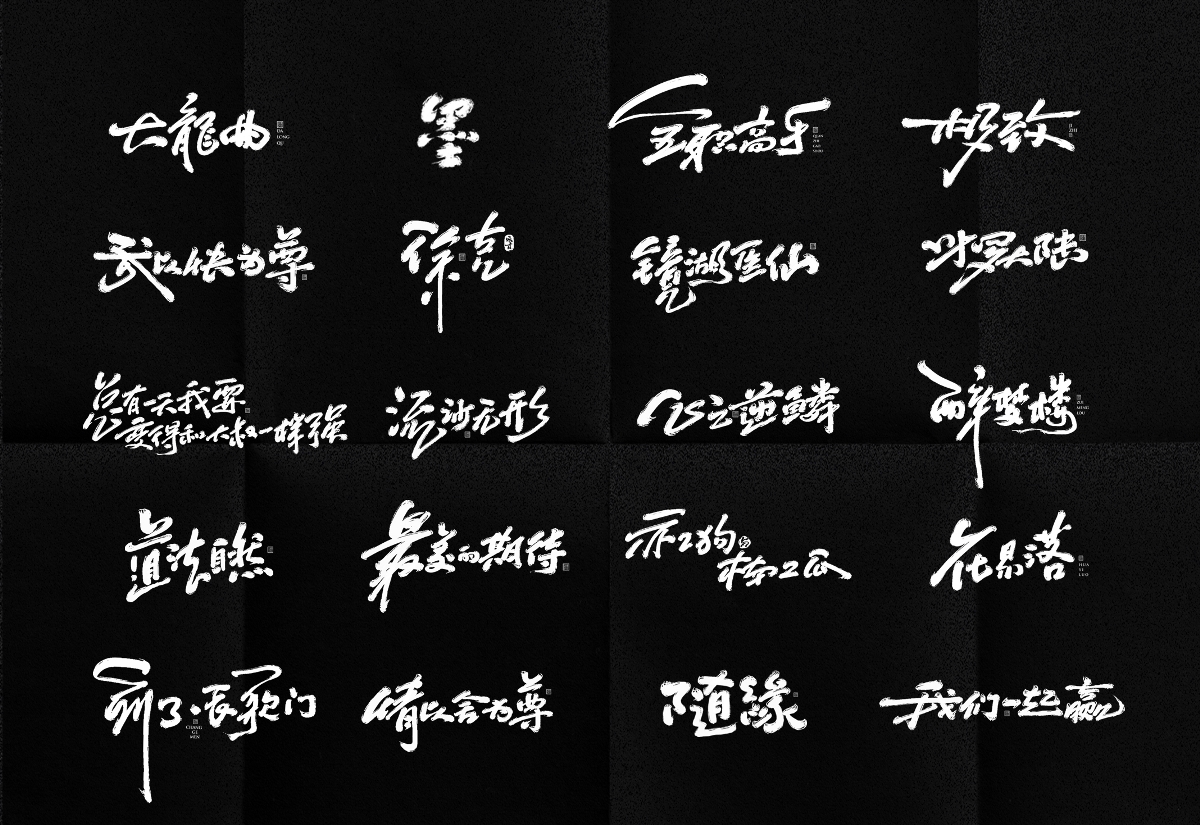 大龍曲
DA
LONG
QU
墨
全职高手
QUAN
ZHI
GAO
SHOU
极致
JI
ZHI
武以侠为尊
徐克
镜湖医仙
斗罗大陆
总有一天我要
变得和大叔一样强
流沙无形
公子逆鳞
醉梦楼
ZUI
MENG
LOU
道法自然
最美的期待
赤工狗与
柿工瓜
花易落
HUA
YI
LUO
到了·长歌门
CHANG
GE
MEN
情以舍为尊
随缘
我们一起赢